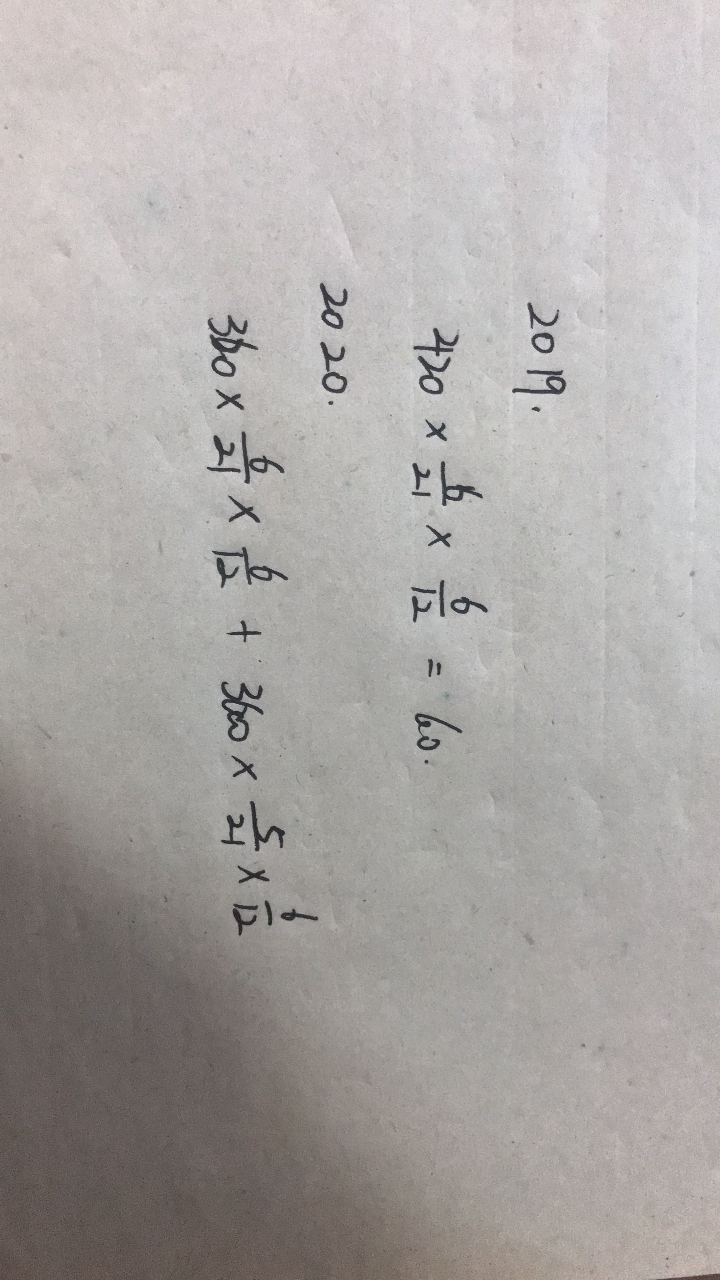 2019.
420 × 6/21 × 6/12 = 60.
2020.
360 × 6/21 × 6/12 + 360 × 5/21 × 6/12